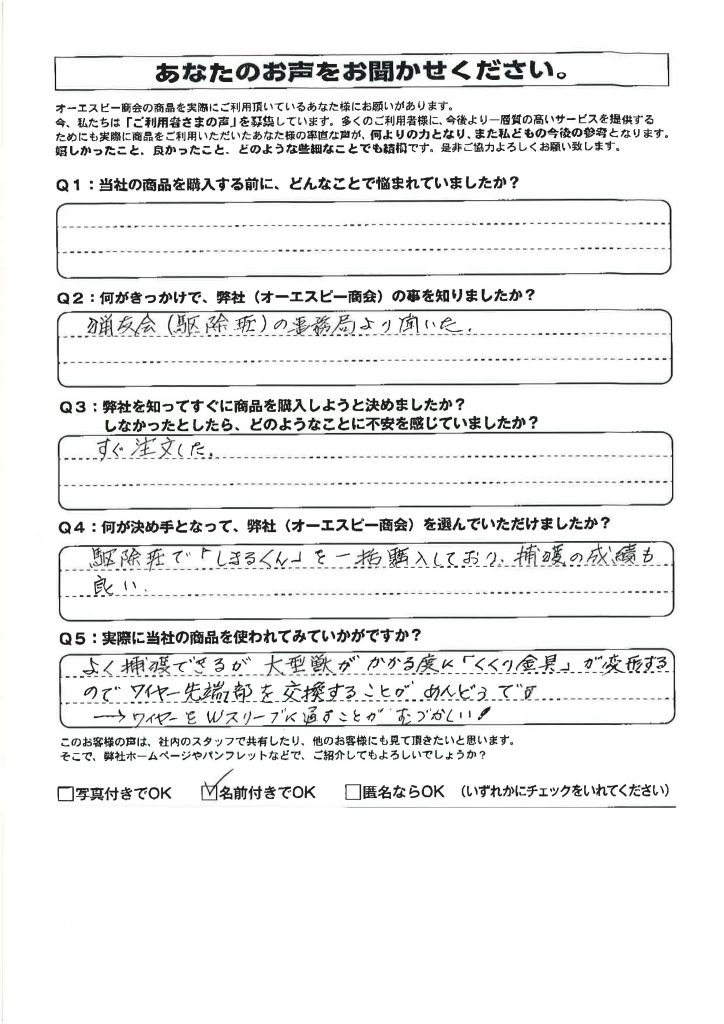 あなたのお声をお聞かせください。
オーエスピー商会の商品を実際にご利用頂いているあなた様にお願いがあります。
今、私たちは「ご利用者さまの声」を募集しています。多くのご利用者様に、今後より一層質の高いサービスを提供する
ためにも実際に商品をご利用いただいたあなた様の率直な声が、何よりの力となり、また私どもの今後の参考となります。
嬉しかったこと、良かったこと、どのような些細なことでも結構です。是非ご協力よろしくお願い致します。
Q1：当社の商品を購入する前に、どんなことで悩まれていましたか？
Q2：何がきっかけで、弊社（オーエスピー商会）の事を知りましたか？
猟友会(駆除班)の事務局より聞いた.
Q3：弊社を知ってすぐに商品を購入しようと決めましたか？
しなかったとしたら、どのようなことに不安を感じていましたか？
すぐ注文した.
Q4：何が決め手となって、弊社（オーエスピー商会）を選んでいただけましたか？
駆除班で「しまるくん」を一括購入しており、捕獲の成績も
良い.
Q5：実際に当社の商品を使われてみていかがですか？
よく捕獲できるが 大型獣がかかる度に「くくり金具」が変形する
のでワイヤー先端部を交換することがめんどうです
→ワイヤーをWスリーブに通すことがむづかしい!
このお客様の声は、社内のスタッフで共有したり、他のお客様にも見て頂きたいと思います。
そこで、弊社ホームページやパンフレットなどで、ご紹介してもよろしいでしょうか？
□写真付きでOK ☑名前付きでOK □匿名ならOK （いずれかにチェックをいれてください）